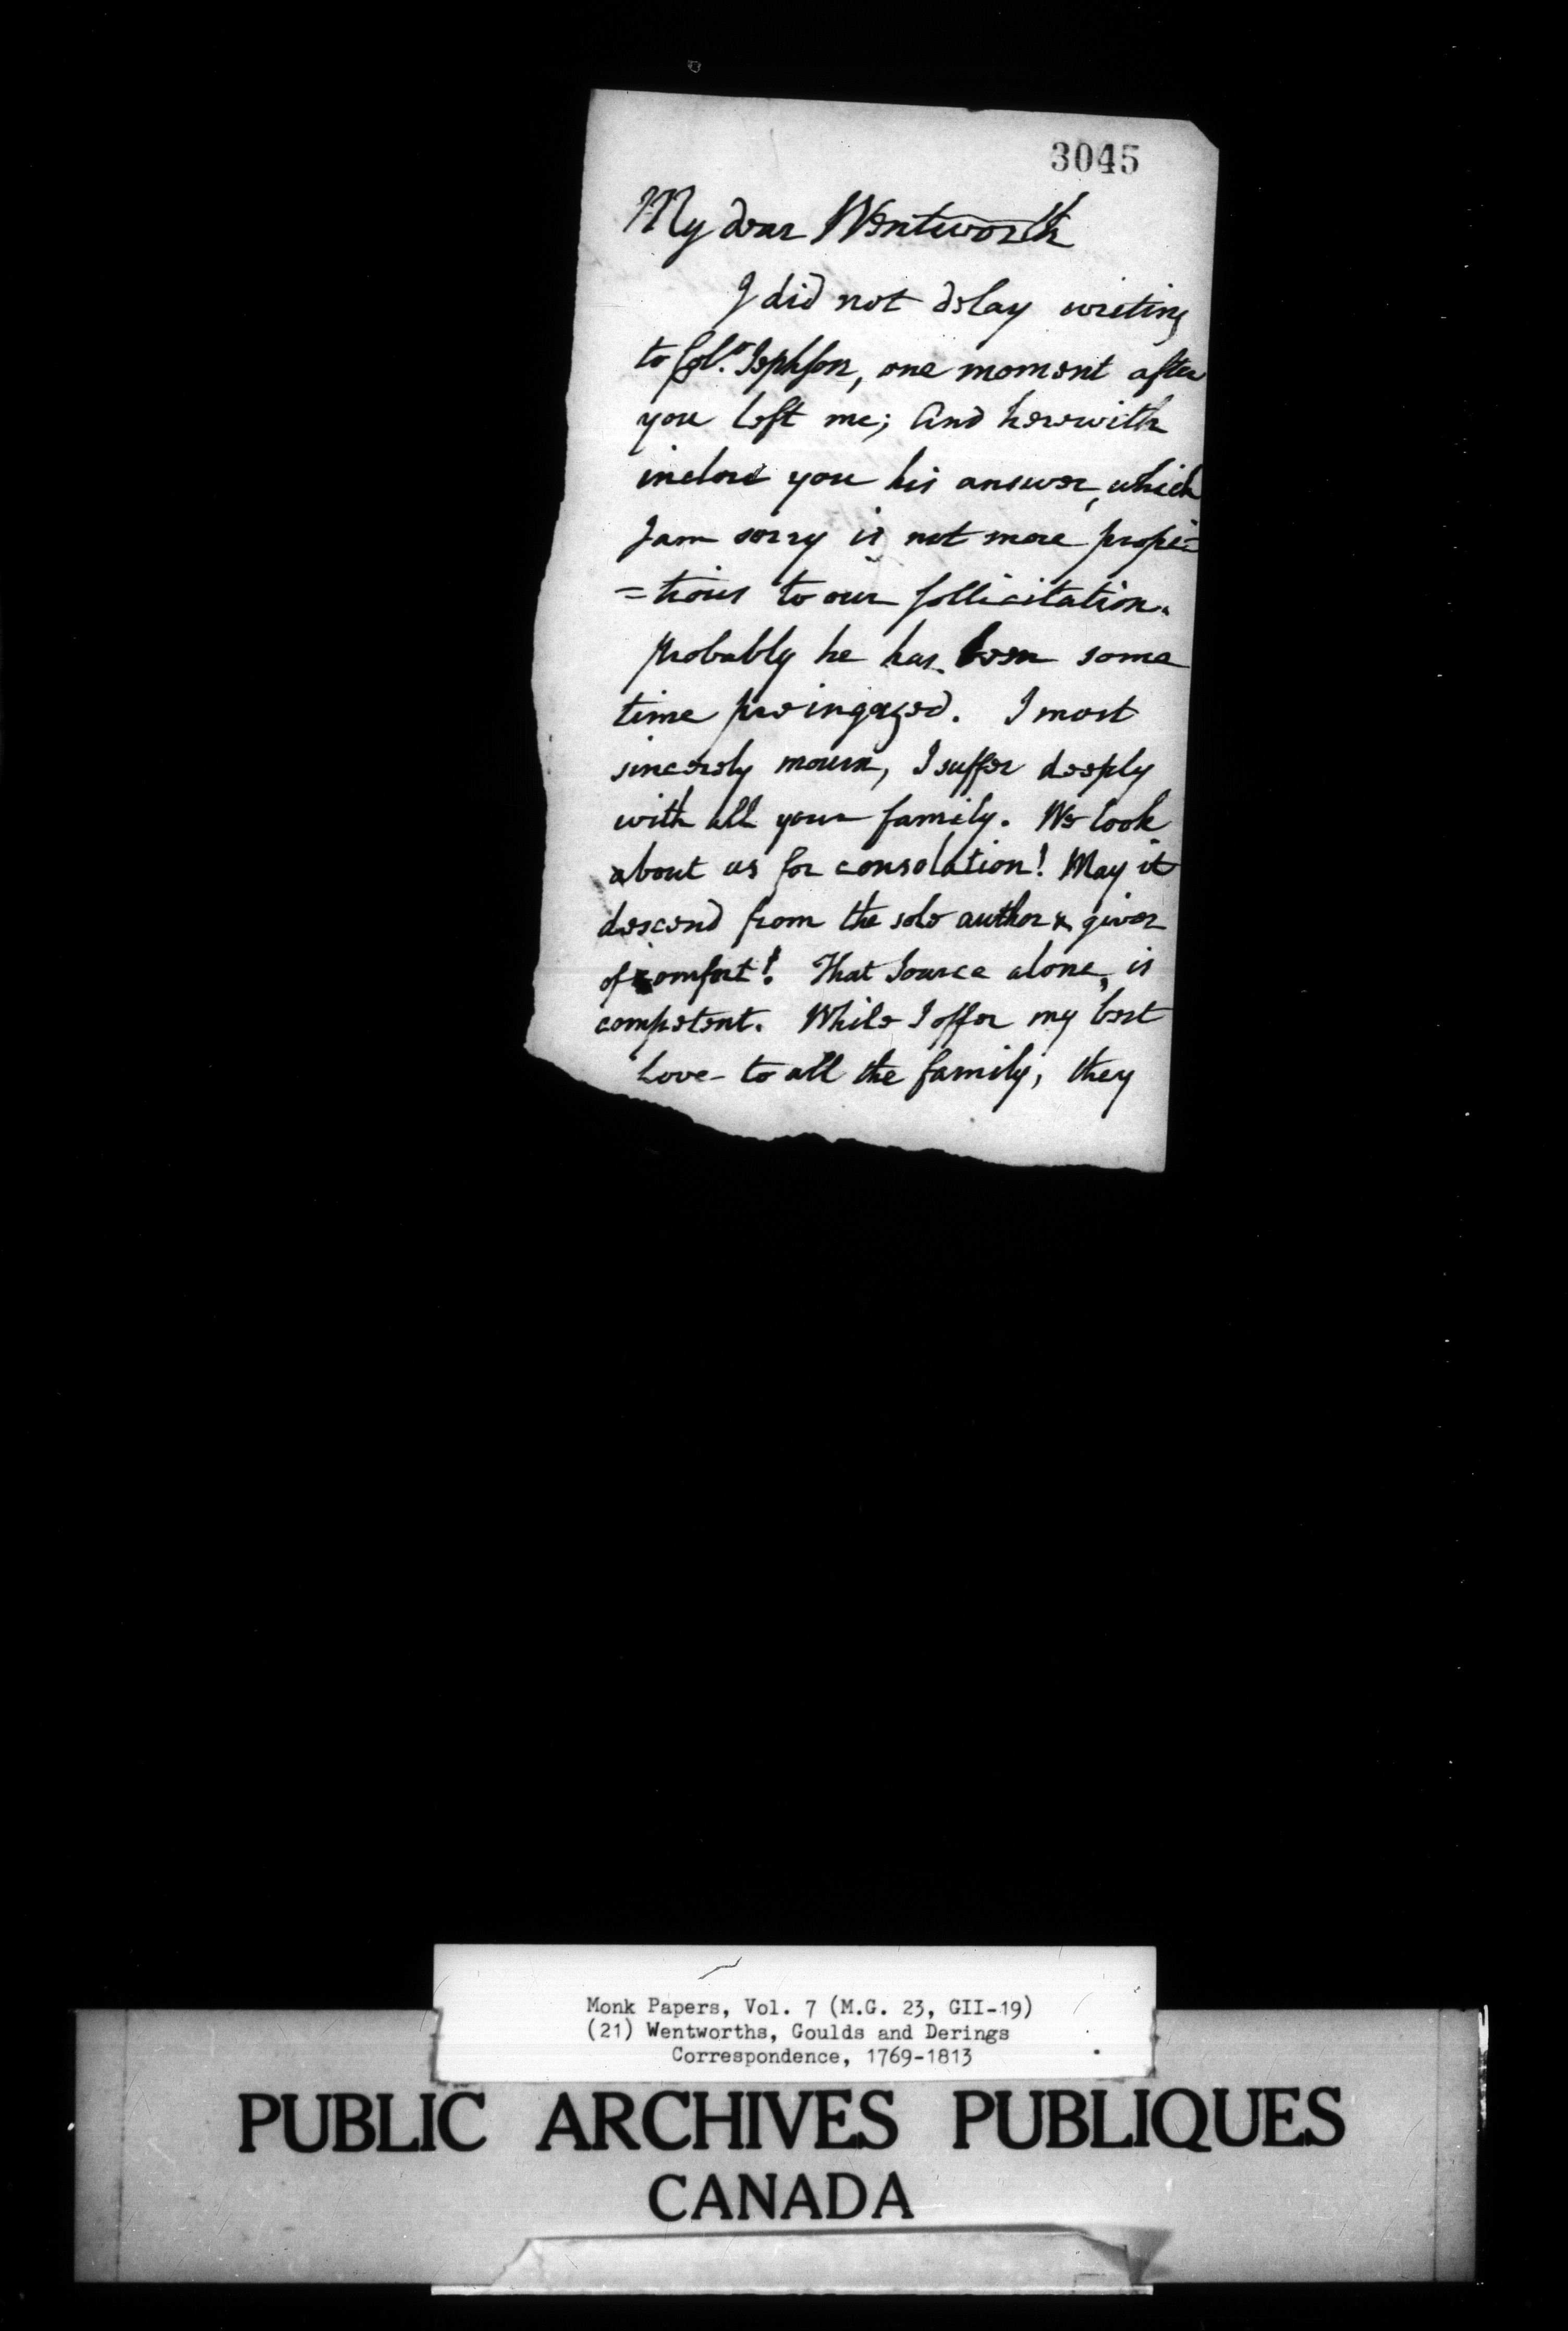 3045
My dear Wentworth
I did not delay writing
to Col.º Jephson, one moment after
you left me; And herewith
inclose you his answer, which
I am sorry is not more propi=
=tious to our sollicitation.
probably he has been some
time preingaged. I most
sincerely mourn, I suffer deeply
with all your family. We look
about us for consolation! May it
descend from the sole author & giver
of comfort! That Source alone, is
competent. While I offer my best
Love to all the family, they
Monk Papers, Vol. 7 (M.G. 23, GII-19)
(21) Wentworths, Goulds and Derings
Correspondence, 1769-1813
PUBLIC ARCHIVES PUBLIQUES
CANADA